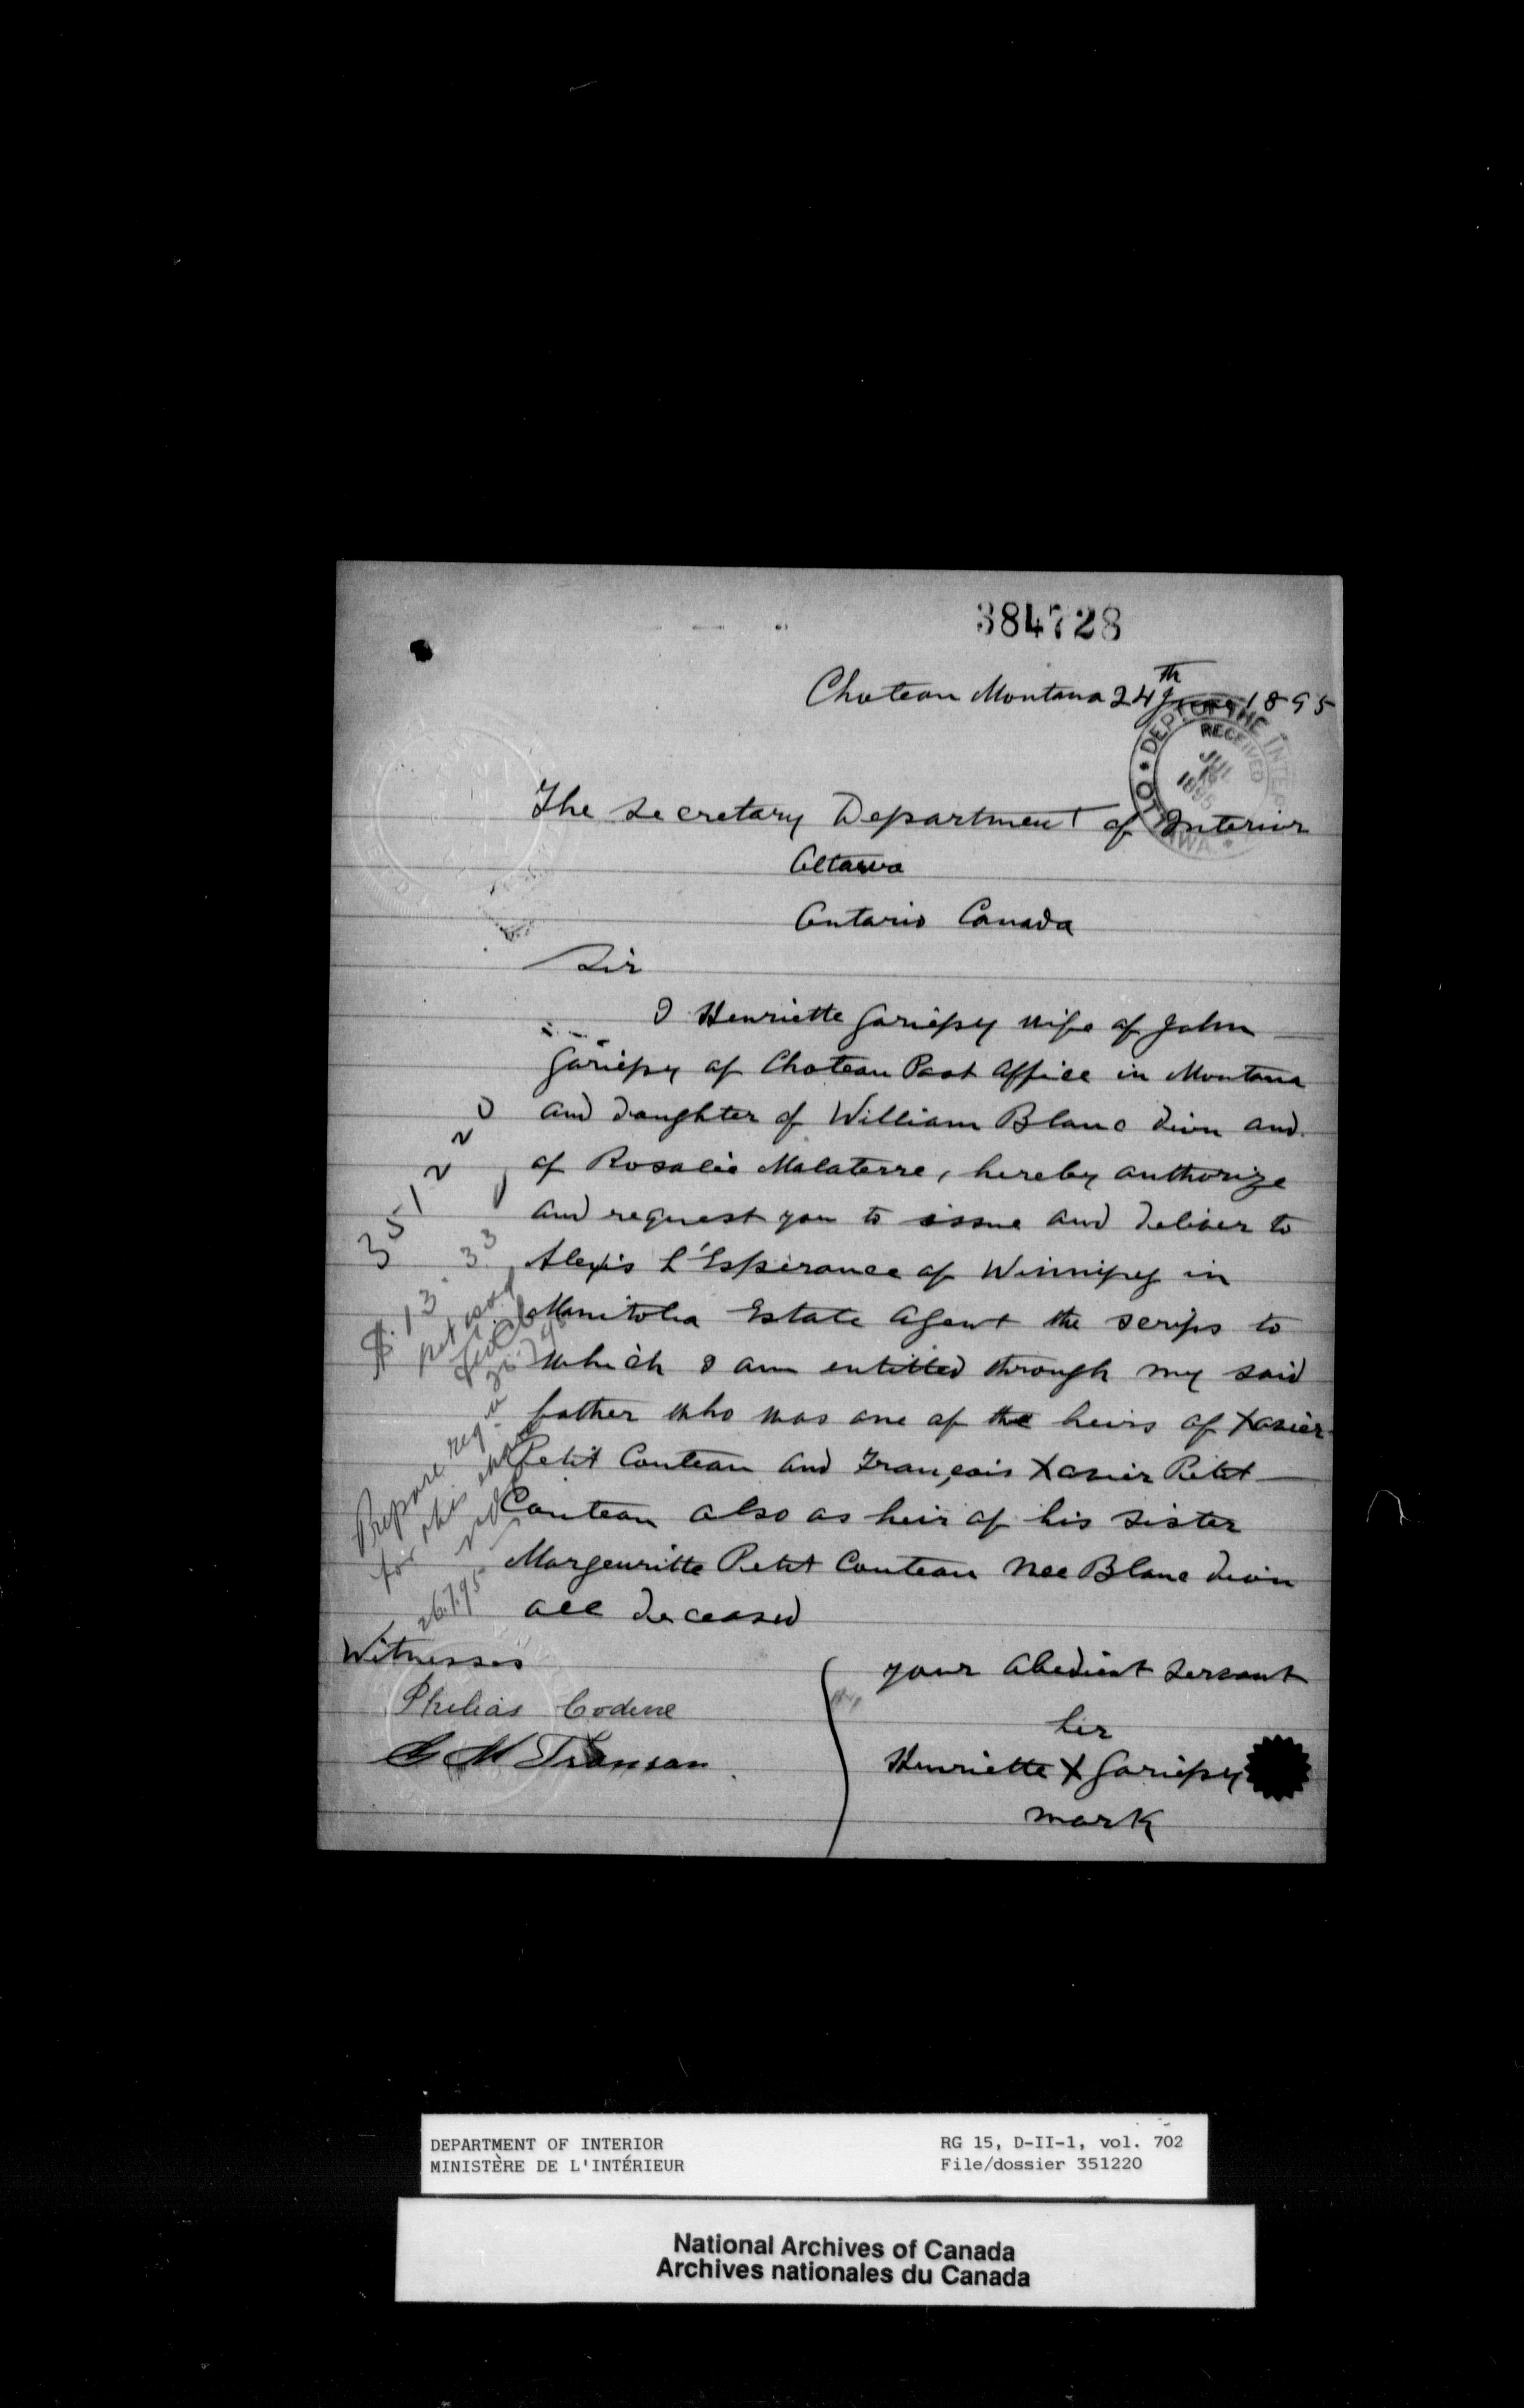 384728
Choteau Montana 24th June 1895
DEPT. OF THE INTERIOR
RECEIVED
JUL
1895
OTTAWA
The Secretary Department of Interior
Ottawa
Ontario Canada
Sir
I Henriette Gariépy wife of John
Gariépy of Choteau Post Office in Montana
and daughter of William Blanc dion and
of Rosalie Malaterre, hereby authorize
and request you to issue and deliver to
Alexis L'Espérance of Winnipeg in
Manitoba Estate Agent the scrips to
which I am entitled through my said
father who was one of the heirs of Xavier
Petit Couteau and François Xavier Petit
Couteau also as heir of his sister
Margeuritte Petit Couteau nee Blanc dion
all deceased
351220
$13.33
Prepare req
for this
26.7.95
Witnesses
Philias Coderre
C M Transan
your obedient servant
her
Henriette X Gariépy
mark
DEPARTMENT OF INTERIOR
MINISTÈRE DE L'INTÉRIEUR
RG 15, D-II-1, vol. 702
File/dossier 351220
National Archives of Canada
Archives nationales du Canada